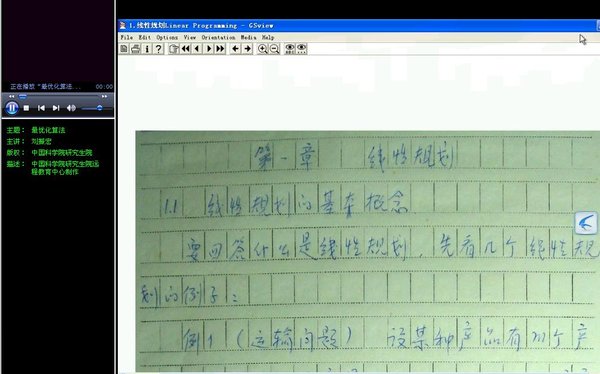 1.线性规划Linear Programming - GSview
File Edit Options View Orientation Media Help
正在播放"最优化算法... 00:00
主题: 最优化算法
主讲: 刘振宏
版权: 中国科学院研究生院
描述: 中国科学院研究生院远
程教育中心制作
第一章 线性规划
1.1 线性规划的基本概念
要回答什么是线性规划,先看几个线性规
划的例子:
例1(运输问题) 设某种产品有m个产